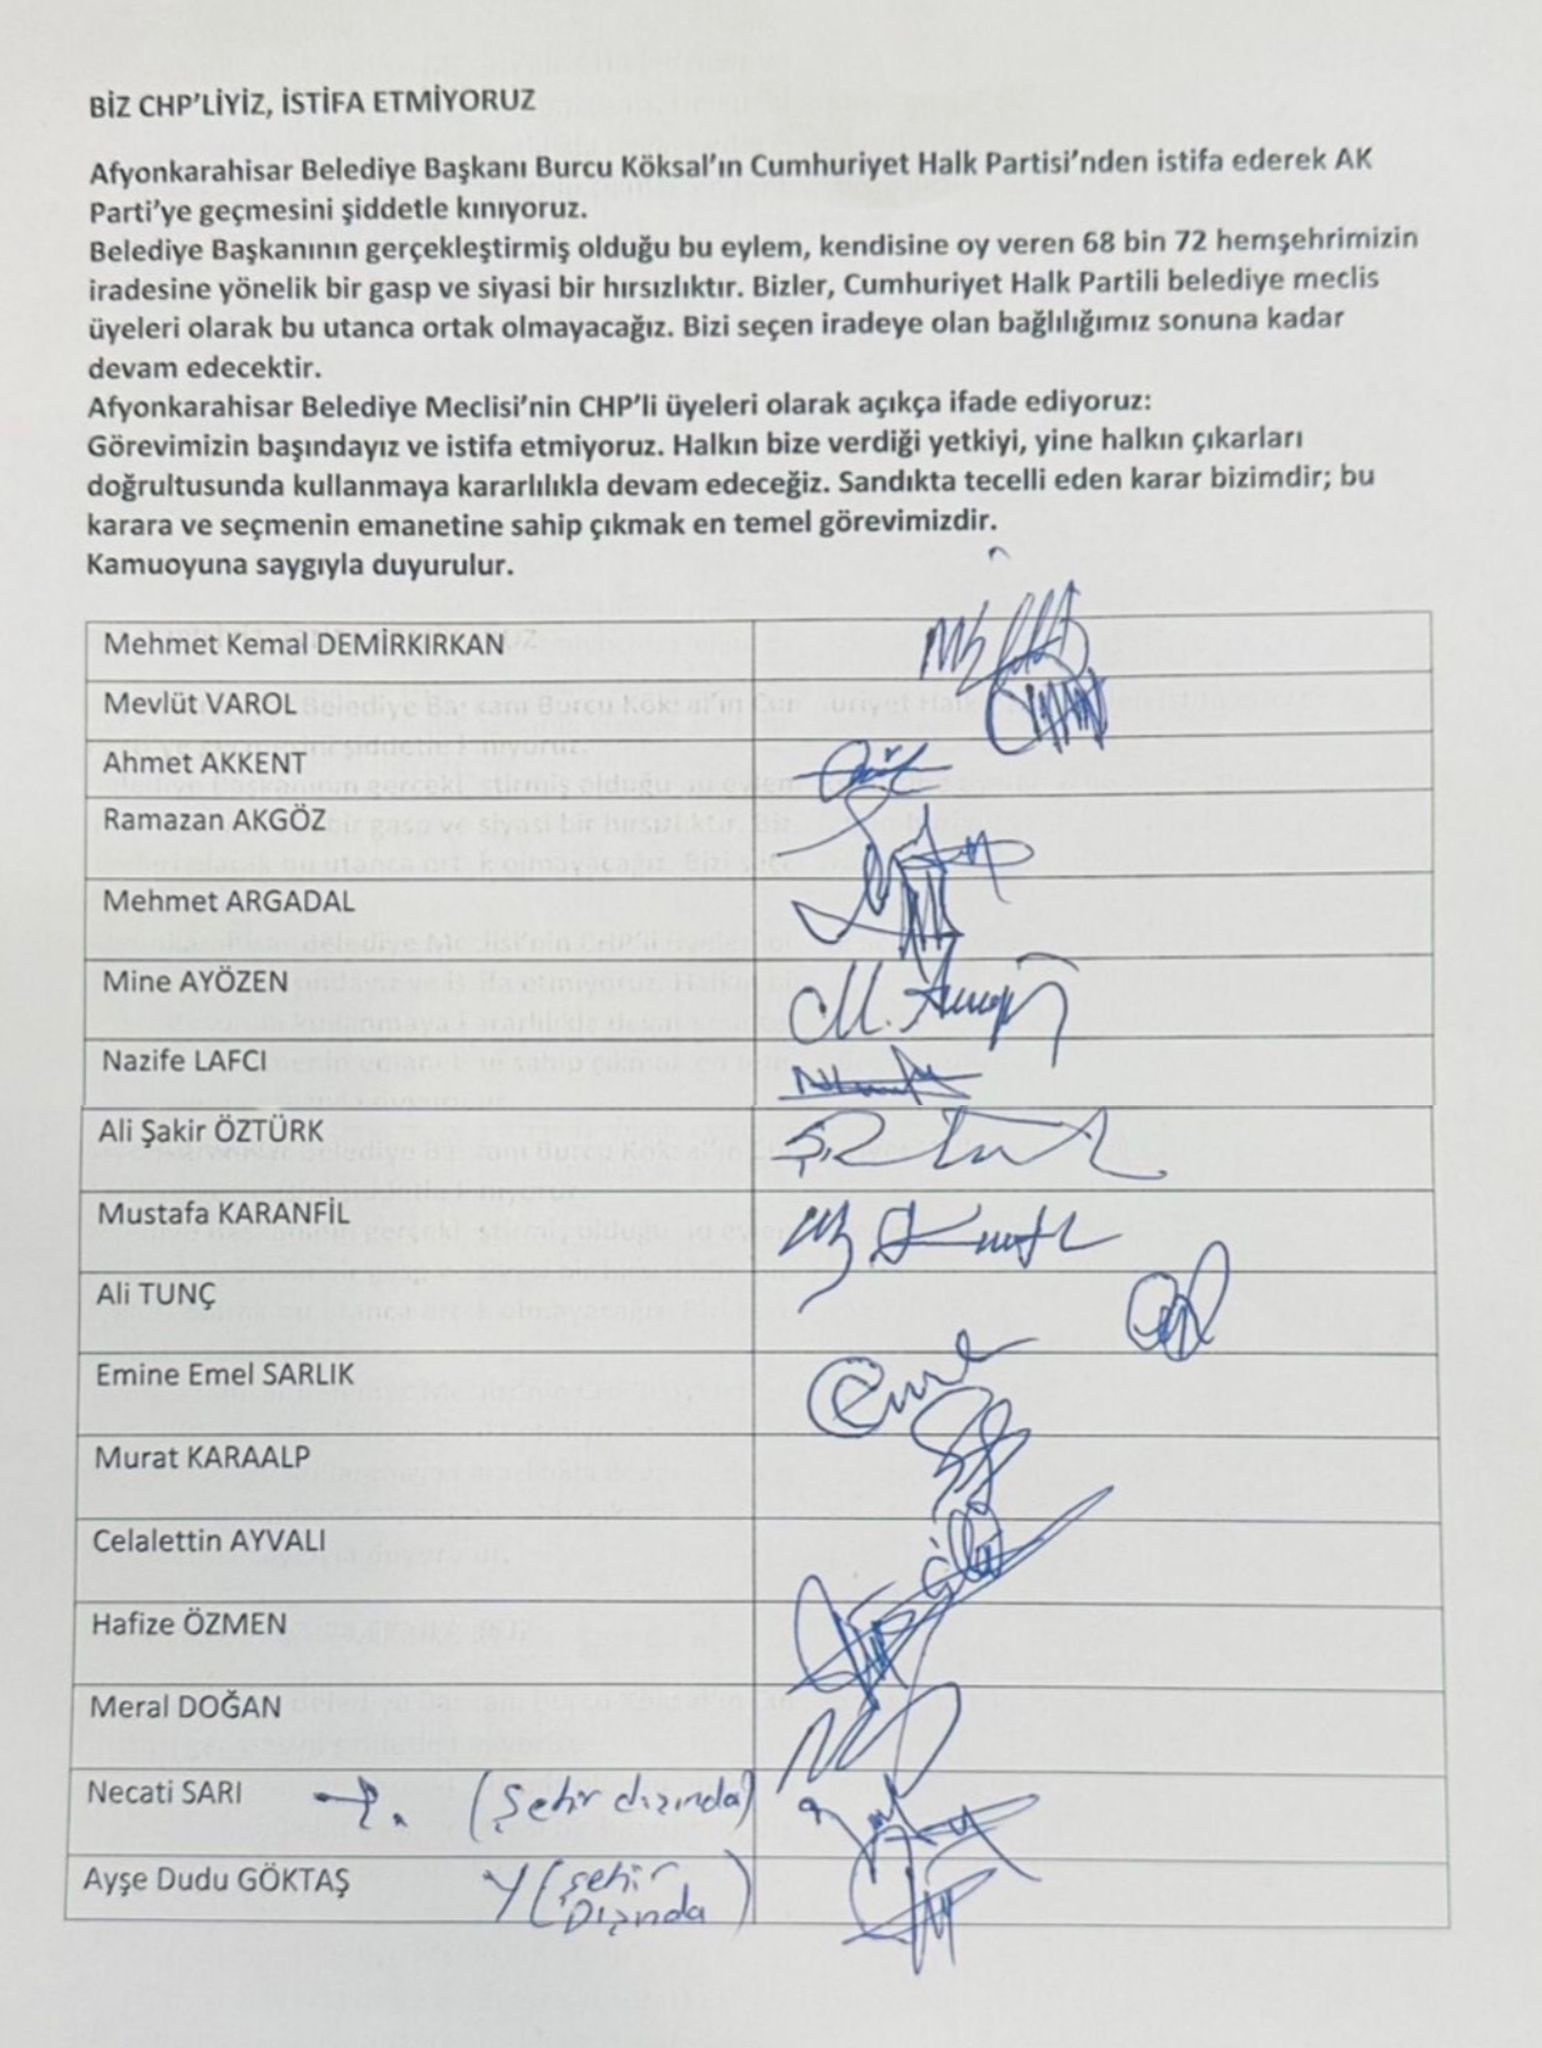 BİZ CHP'LİYİZ, İSTİFA ETMİYORUZ
Afyonkarahisar Belediye Başkanı Burcu Köksal'ın Cumhuriyet Halk Partisi'nden istifa ederek AK
Parti'ye geçmesini şiddetle kınıyoruz.
Belediye Başkanının gerçekleştirmiş olduğu bu eylem, kendisine oy veren 68 bin 72 hemşehrimizin
iradesine yönelik bir gasp ve siyasi bir hırsızlıktır. Bizler, Cumhuriyet Halk Partili belediye meclis
üyeleri olarak bu utanca ortak olmayacağız. Bizi seçen iradeye olan bağlılığımız sonuna kadar
devam edecektir.
Afyonkarahisar Belediye Meclisi'nin CHP'li üyeleri olarak açıkça ifade ediyoruz:
Görevimizin başındayız ve istifa etmiyoruz. Halkın bize verdiği yetkiyi, yine halkın çıkarları
doğrultusunda kullanmaya kararlılıkla devam edeceğiz. Sandıkta tecelli eden karar bizimdir; bu
karara ve seçmenin emanetine sahip çıkmak en temel görevimizdir.
Kamuoyuna saygıyla duyurulur.
Mehmet Kemal DEMİRKIRKAN
Mevlüt VAROL
Ahmet AKKENT
Ramazan AKGÖZ
Mehmet ARGADAL
Mine AYÖZEN
Nazife LAFCI
Ali Şakir ÖZTÜRK
Mustafa KARANFİL
Ali TUNÇ
Emine Emel SARLIK
Murat KARAALP
Celalettin AYVALI
Hafize ÖZMEN
Meral DOĞAN
Necati SARI (Şehir dışında)
Ayşe Dudu GÖKTAŞ (şehir
Dışında)